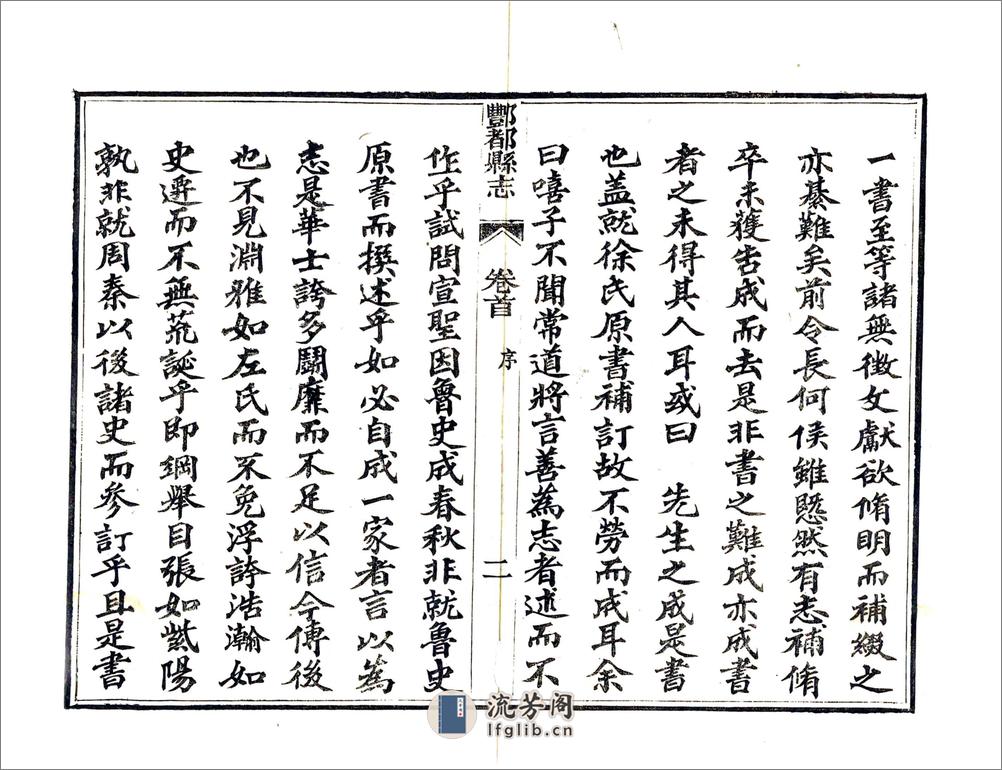 一書至等諸無徵文獻欲脩明而補綴之
亦綦難矣前令長何侯雖懸然有志補脩
卒未獲告成而去是非書之難成亦成書
者之未得其人耳或曰　先生之成是書
也盖就徐氏原書補訂故不勞而成耳余
曰嘻子不聞常道將言善為志者述而不
酆都縣志
卷首
序
二
作乎試問宣聖因魯史成春秋非就魯史
原書而撰述乎如必自成一家者言以為
志是華士誇多鬭靡而不足以信今傳後
也不見淵雅如左氏而不免浮誇浩瀚如
史遷而不無荒誕乎即綱舉目張如紫陽
孰非就周秦以後諸史而參訂乎且是書
流芳阁
lfglib.cn